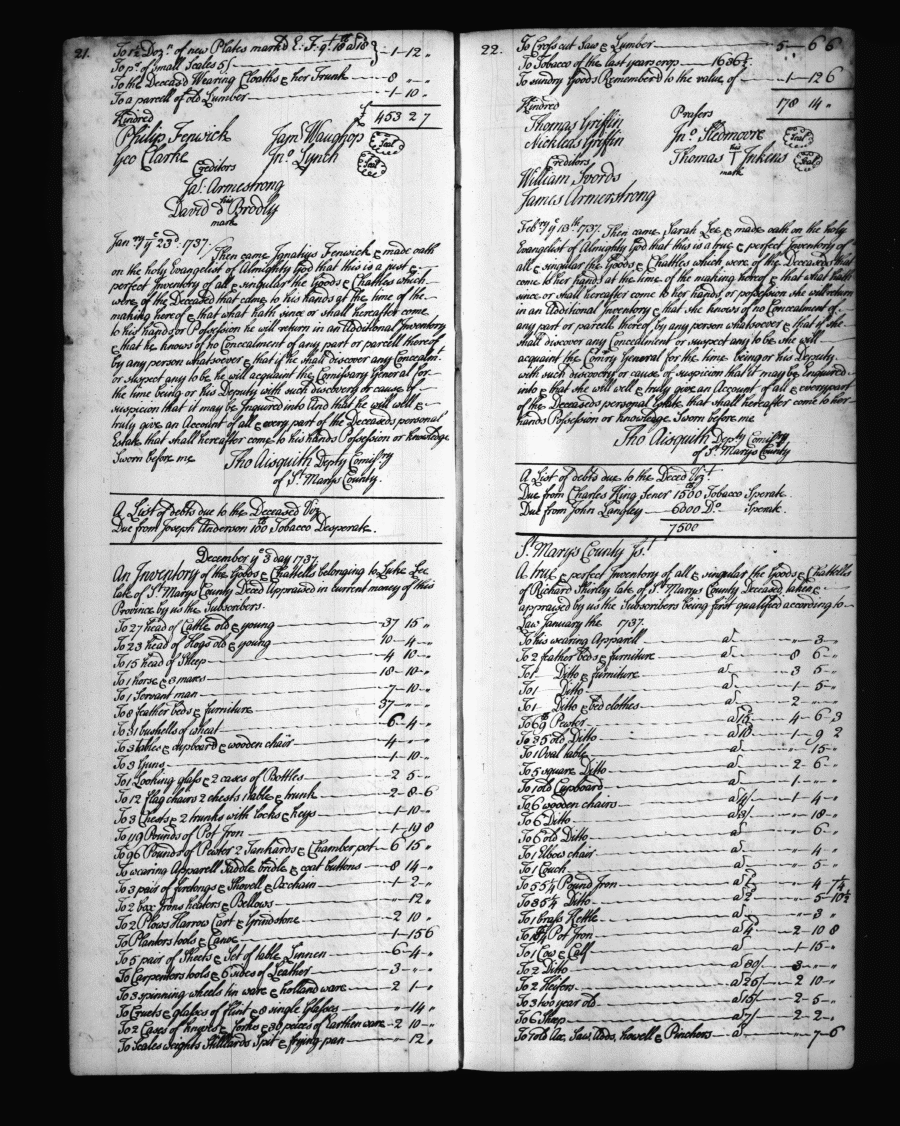 21.
To 1½ Dozn. of new Plates markd E. F. qt. 18 a 18
To pr. of small Scales 5/ 1 12 "
To the Deceasd Wearing Cloaths & her Trunk 8 " "
To a parcell of old Lumber 1 10 "
£ 453 2 7
Kindred
Philip Fenwick Jams Waughop Seal
Geo Clarke Jno. Lynch Seal
Creditors
Ja: Armstrong
David his Brodly
mark
Janry ye 23d. 1737. Then came Ignatius Fenwick & made oath
on the holy Evangelist of Almighty God that this is a just &
perfect Inventory of all & singular the Goods & Chattles which
were of the Deceased that came to his hands at the time of the
making here of & that what hath since or shall hereafter come
to his hands or Possession he will return in an Additional Inventory
& that he knows of no Concealment of any part or parcell thereof
by any person whatsoever & that if he shall discover any Concealmt.
or suspect any to be he will acquaint the Comissary General for
the time being or his Deputy with such discovery or cause of
suspicion that it may be Inquired into And that he will well &
truly give an Account of all & every part of the Deceaseds personal
Estate that shall hereafter come to his hands Possession or knowledge
Sworn before me Tho Aisquith Depty Comisry
of St. Marys County.
A List of debts due to the Deceased Viz
Due from Joseph Anderson 100 Tobacco Desperate.
December ye 3 day 1737.
An Inventory of the Goods & Chattells belonging to Luke Lee
late of St. Marys County Deced Appraised in current money of this
Province by us the Subscribers.
To 27 head of Cattle old & young 37 15 "
To 23 head of Hogs old & young 10 4 "
To 15 head of Sheep 4 10 "
To 1 horse & 3 mares 18 10 "
To 1 Servant man 7 10 "
To 8 feather beds & furniture 37 " "
To 31 bushells of wheat 6 4 "
To 3 tables & cupboard & wooden chair 4 " "
To 3 Guns 1 10 "
To 1 Looking glass & 2 cases of Bottles 2 5 "
To 12 flag chairs 2 chests 1 table & trunk 2 8 6
To 3 Chests & 2 trunks with locks & keys 1 10 "
To 119 Pounds of Pot Iron 1 19 8
To 96 Pounds of Pewter 2 Tankards & Chamber pot 6 15 "
To wearing Apparell Saddle bridle & coat buttons 8 14 "
To 3 pair of firetongs & Shovell & Oxchain 1 2 "
To 2 box Irons heaters & Bellows " 12 "
To 2 Plows Harrow Cart & Grindstone 2 10 "
To Planters tools & Canoe 1 15 6
To 5 pair of Sheets & Set of table Linnen 6 4 "
To Carpenters tools & 6 sides of Leather 3 " "
To 3 spinning wheels tin ware & holland ware 2 1 "
To Cruets & glasses of flint & 8 single Glasses " 14 "
To 2 Cases of knives & forks & 30 peices of Earthen ware 2 10 "
To Scales weights Stilliards Spit & frying pan " 12 "
22.
To Cross cut Saw & Lumber 5 6 6
To Tobacco of the last years crop 1636½
To sundry Goods Remember'd to the value of 1 12 6
178 14 "
Kindred Prasers
Thomas Griffin Jno. Medmoore Seal
Nickleas Griffin Thomas his T Jnkins Seal
mark
Creditors
William Swords
James Armerstrong
Febry ye 13th. 1737. Then came Sarah Lee & made oath on the holy
Evangelist of Almighty God that this is a true & perfect Inventory of
all & singular the Goods & Chattles which were of the Deceased that
come to her hands at the time of the making hereof & that what hath
since or shall hereafter come to her hands or possession she will return
in an Additional Inventory & that she knows of no Concealment of
any part or parcell thereof by any person whatsoever & that if she
shall discover any Concealment or suspect any to be she will
acquaint the Comry General for the time being or his Deputy
with such discovery or cause of suspicion that it may be Enquired
into & that she will well & truly give an Account of all & every part
of the Deceaseds personal Estate that shall hereafter come to her
hands Possession or knowledge Sworn before me
Tho Aisquith Depty Comisry
of St Marys County
A List of debts due to the Deced Vizt
Due from Charles King Sener 1500 Tobacco Sperate.
Due from John Langley 6000 Do. Sperate.
7500
St. Marys County Ss.
A true & perfect Inventory of all & singular the Goods & Chattells
of Richard Shirley late of St. Marys County Deceased, taken &
appraised by us the Subscribers being first qualified according to
Law January the 1737.
To his wearing Apparell a " 3 "
To 2 feather beds & furniture a 8 6 "
To 1 Ditto & furniture a 3 5 "
To 1 Ditto a 1 5 "
To 1 Ditto & bed clothes a 2 " "
To 69 lb Pewter a 15 4 6 3
To 35 old Ditto a 10 1 9 2
To 1 Oval table a " 15 "
To 5 square Ditto a 2 6 "
To 1 old Cupboard a 1 " "
To 6 wooden chairs a 4/ 1 4 "
To 6 Ditto a 3/ " 18 "
To 6 old Ditto a " 6 "
To 1 Elbow chair a " 4 "
To 1 Couch a " 5 "
To 554 Pound Iron a 2 4 7½
To 35¼ Ditto a 2 " 5 10½
To 1 brass Kettle a " 3 "
To Pot Iron a 4 2 10 8
To 1 Cow & Calf a 1 15 "
To 2 Ditto a 30/ 3 " "
To 2 Heifers a 25/ 2 10 "
To 3 two year old a 15/ 2 5 "
To 6 Sheep a 7/ 2 2 "
To 1 old Ax, Saw, Adds, howell & Pinchers a " 7 6